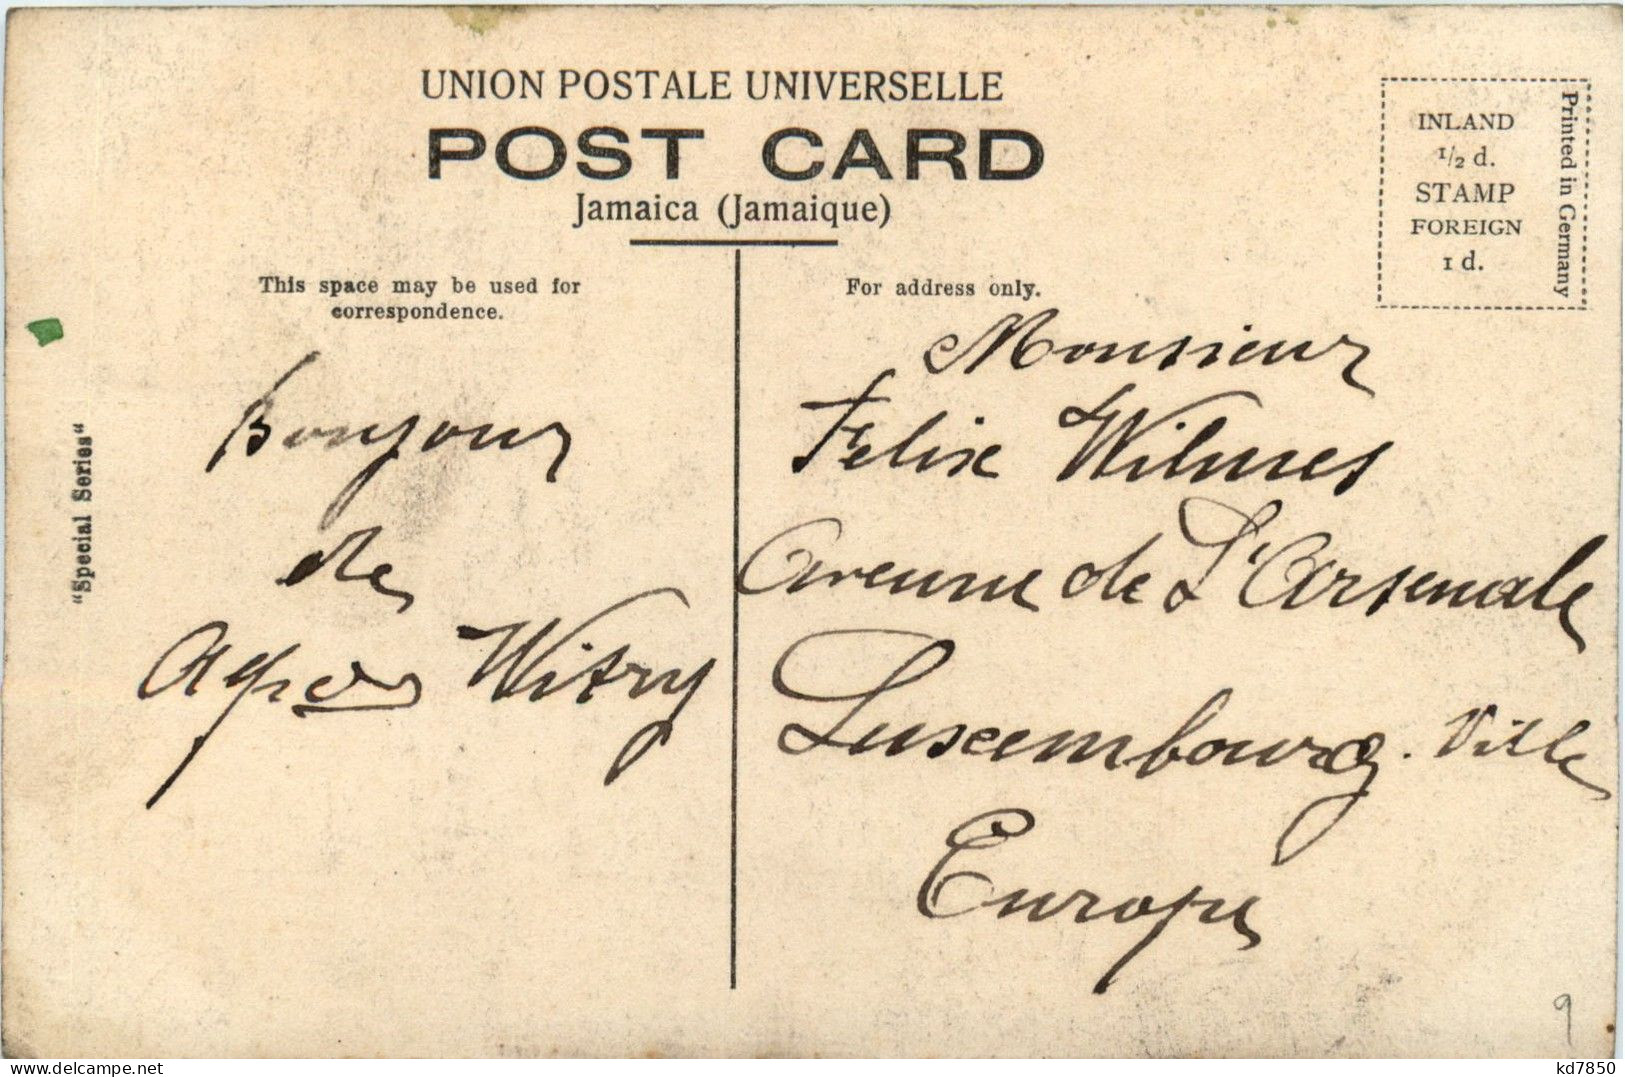 UNION POSTALE UNIVERSELLE
POST CARD
Jamaica (Jamaique)
INLAND
1/2 d.
STAMP
FOREIGN
1 d.
Printed in Germany
This space may be used for
correspondence.
For address only.
"Special Series"
Bonjour
de
Witry
Monsieur
Felix Wilmes
Avenue de L'Arsenale
Luxembourg. Ville
Europe
9
kd7850